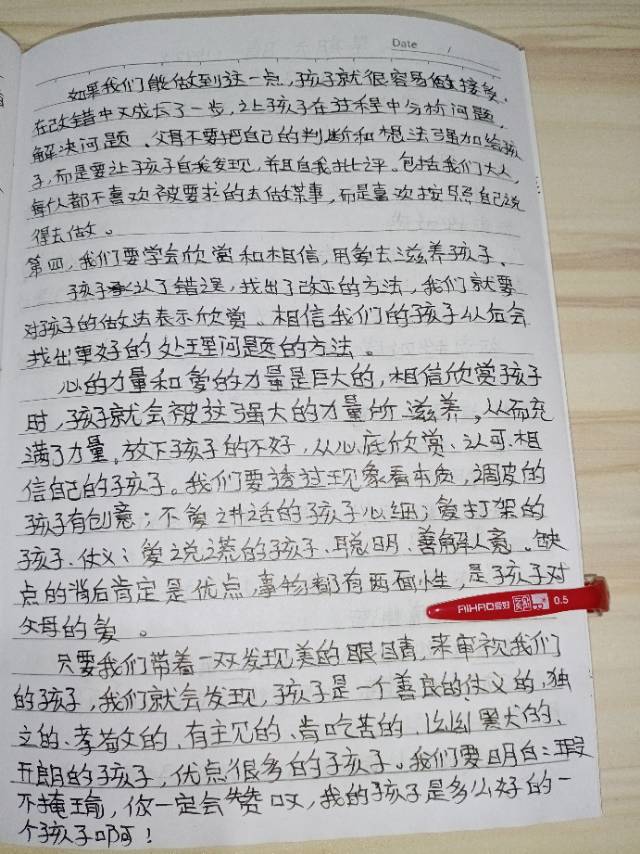 Date /
如果我们能做到这一点,孩子就很容易做接受,
在改错中又成长了一步,让孩子在过程中分析问题,
解决问题。父母不要把自己的判断和想法强加给孩
子,而是要让孩子自我发现,并且自我批评。包括我们大人,
每个人都不喜欢被要求的去做某事,而是喜欢按照自己觉
得去做。
第四,我们要学会欣赏和相信,用爱去滋养孩子。
孩子承认了错误,找出了改正的方法,我们就要
对孩子的做法表示欣赏。相信我们的孩子从后会
找出更好的处理问题的方法。
心的力量和爱的力量是巨大的,相信欣赏孩子
时,孩子就会被这强大的力量所滋养,从而充
满了力量,放下孩子的不好,从心底欣赏、认可、相
信自己的孩子。我们要透过现象看本质,调皮的
孩子有创意;不爱讲话的孩子心细;爱打架的
孩子、仗义;爱说谎的孩子、聪明、善解人意。缺
点的背后肯定是优点,事物都有两面性,是孩子对
父母的爱。
AIHAO爱好 0.5
只要我们带着一双发现美的眼睛,来审视我们
的孩子,我们就会发现,孩子是一个善良的、仗义的、独
立的、孝敬的、有主见的、肯吃苦的、幽默的、
开朗的孩子,优点很多的孩子。我们要明白:瑕
不掩瑜,你一定会赞叹,我的孩子是多么好的一
个孩子啊!